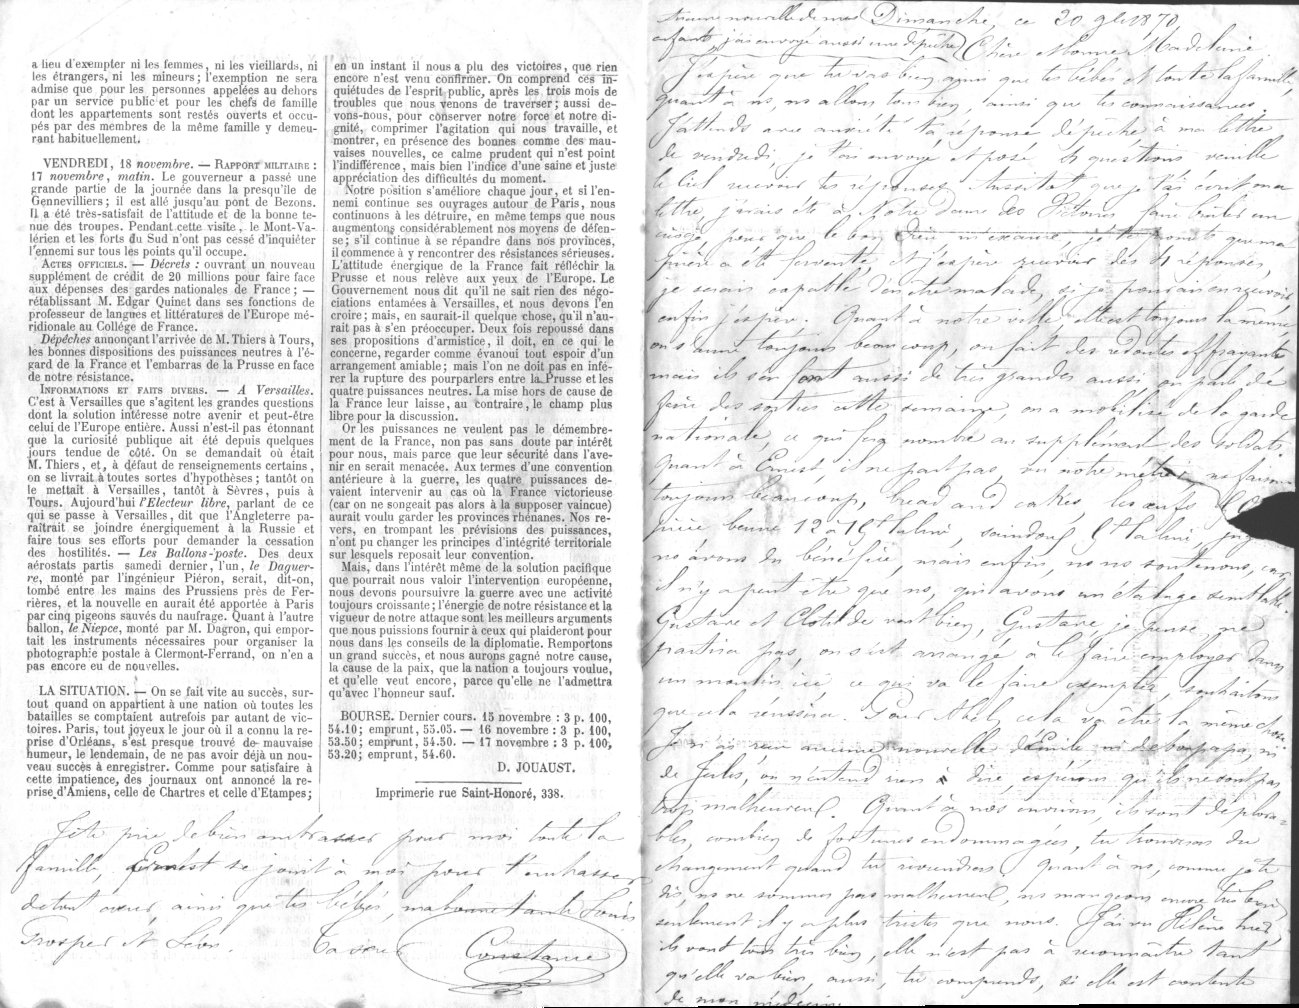 a lieu d'exempter ni les femmes, ni les vieillards, ni
les étrangers, ni les mineurs; l'exemption ne sera
admise que pour les personnes appelées au dehors
par un service public et pour les chefs de famille
dont les appartements sont restés ouverts et occu-
pés par des membres de la même famille y demeu-
rant habituellement.
VENDREDI, 18 novembre. — RAPPORT MILITAIRE :
17 novembre, matin. Le gouverneur a passé une
grande partie de la journée dans la presqu'île de
Gennevilliers; il est allé jusqu'au pont de Bezons.
Il a été très-satisfait de l'attitude et de la bonne te-
nue des troupes. Pendant cette visite, le Mont-Va-
lérien et les forts du Sud n'ont pas cessé d'inquiéter
l'ennemi sur tous les points qu'il occupe.
ACTES OFFICIELS. — Décrets : ouvrant un nouveau
supplément de crédit de 20 millions pour faire face
aux dépenses des gardes nationales de France; —
rétablissant M. Edgar Quinet dans ses fonctions de
professeur de langues et littératures de l'Europe mé-
ridionale au Collége de France.
Dépêches annonçant l'arrivée de M. Thiers à Tours,
les bonnes dispositions des puissances neutres à l'é-
gard de la France et l'embarras de la Prusse en face
de notre résistance.
INFORMATIONS ET FAITS DIVERS. — A Versailles.
C'est à Versailles que s'agitent les grandes questions
dont la solution intéresse notre avenir et peut-être
celui de l'Europe entière. Aussi n'est-il pas étonnant
que la curiosité publique ait été depuis quelques
jours tendue de côté. On se demandait où était
M. Thiers, et, à défaut de renseignements certains,
on se livrait à toutes sortes d'hypothèses; tantôt on
le mettait à Versailles, tantôt à Sèvres, puis à
Tours. Aujourd'hui l'Electeur libre, parlant de ce
qui se passe à Versailles, dit que l'Angleterre pa-
raîtrait se joindre énergiquement à la Russie et
faire tous ses efforts pour demander la cessation
des hostilités. — Les Ballons-poste. Des deux
aérostats partis samedi dernier, l'un, le Daguer-
re, monté par l'ingénieur Piéron, serait, dit-on,
tombé entre les mains des Prussiens près de Fer-
rières, et la nouvelle en aurait été apportée à Paris
par cinq pigeons sauvés du naufrage. Quant à l'autre
ballon, le Niepce, monté par M. Dagron, qui empor-
tait les instruments nécessaires pour organiser la
photographie postale à Clermont-Ferrand, on n'en a
pas encore eu de nouvelles.
LA SITUATION. — On se fait vite au succès, sur-
tout quand on appartient à une nation où toutes les
batailles se comptaient autrefois par autant de vic-
toires. Paris, tout joyeux le jour où il a connu la re-
prise d'Orléans, s'est presque trouvé de mauvaise
humeur, le lendemain, de ne pas avoir déjà un nou-
veau succès à enregistrer. Comme pour satisfaire à
cette impatience, des journaux ont annoncé la re-
prise d'Amiens, celle de Chartres et celle d'Etampes;
en un instant il nous a plu des victoires, que rien
encore n'est venu confirmer. On comprend ces in-
quiétudes de l'esprit public, après les trois mois de
troubles que nous venons de traverser; aussi de-
vons-nous, pour conserver notre force et notre di-
gnité, comprimer l'agitation qui nous travaille, et
montrer, en présence des bonnes comme des mau-
vaises nouvelles, ce calme prudent qui n'est point
l'indifférence, mais bien l'indice d'une saine et juste
appréciation des difficultés du moment.
Notre position s'améliore chaque jour, et si l'en-
nemi continue ses ouvrages autour de Paris, nous
continuons à les détruire, en même temps que nous
augmentons considérablement nos moyens de défen-
se; s'il continue à se répandre dans nos provinces,
il commence à y rencontrer des résistances sérieuses.
L'attitude énergique de la France fait réfléchir la
Prusse et nous relève aux yeux de l'Europe. Le
Gouvernement nous dit qu'il ne sait rien des négo-
ciations entamées à Versailles, et nous devons l'en
croire; mais, en saurait-il quelque chose, qu'il n'au-
rait pas à s'en préoccuper. Deux fois repoussé dans
ses propositions d'armistice, il doit, en ce qui le
concerne, regarder comme évanoui tout espoir d'un
arrangement amiable; mais l'on ne doit pas en infé-
rer la rupture des pourparlers entre la Prusse et les
quatre puissances neutres. La mise hors de cause de
la France leur laisse, au contraire, le champ plus
libre pour la discussion.
Or les puissances ne veulent pas le démembre-
ment de la France, non pas sans doute par intérêt
pour nous, mais parce que leur sécurité dans l'ave-
nir en serait menacée. Aux termes d'une convention
antérieure à la guerre, les quatre puissances de-
vaient intervenir au cas où la France victorieuse
(car on ne songeait pas alors à la supposer vaincue)
aurait voulu garder les provinces rhénanes. Nos re-
vers, en trompant les prévisions des puissances,
n'ont pu changer les principes d'intégrité territoriale
sur lesquels reposait leur convention.
Mais, dans l'intérêt même de la solution pacifique
que pourrait nous valoir l'intervention européenne,
nous devons poursuivre la guerre avec une activité
toujours croissante; l'énergie de notre résistance et la
vigueur de notre attaque sont les meilleurs arguments
que nous puissions fournir à ceux qui plaideront pour
nous dans les conseils de la diplomatie. Remportons
un grand succès, et nous aurons gagné notre cause,
la cause de la paix, que la nation a toujours voulue,
et qu'elle veut encore, parce qu'elle ne l'admettra
qu'avec l'honneur sauf.
BOURSE. Dernier cours. 15 novembre : 3 p. 100,
54.10; emprunt, 55.05. — 16 novembre : 3 p. 100,
53.50; emprunt, 54.50. — 17 novembre : 3 p. 100,
53.20; emprunt, 54.60.
D. JOUAUST.
Imprimerie rue Saint-Honoré, 338.
Je te prie de bien embrasser pour moi toute la
famille, Ernest se joint à moi pour t'embrasser
de tout cœur, ainsi que tes bébés, ma bonne tante Louis
Prosper et Léon. Ta sœur Constance
aucune nouvelle de mes Dimanche, ce 20 9bre 1870,
enfants, j'ai envoyé aussi une dépêche Chère et bonne Madeleine
J'espère que tu vas bien, ainsi que tes bébés et toute la famille,
quant à ns, ns allons tous bien, ainsi que tes connaissances.
J'attends avec anxiété ta réponse dépêche à ma lettre
de vendredi, je t'en envoye et posé 4 questions veuille
le Ciel recevoir tes réponses. Aussitôt que je t'ai écrit ma
lettre, j'avais été à Notre Dame des Victoires faire brûler un
cierge, pour que le bon Dieu m'exauce, je te promets que ma
prière a été fervente, et j'espère recevoir des 4 réponses,
je serais capable d'en être malade, si je pouvais en recevoir,
enfin j'espère. Quant à notre ville elle est toujours la même
on s'arme toujours beaucoup, on fait des redoutes effrayantes
mais ils s'en font aussi de très grandes aussi, on parle de
faire des sorties cette semaine, on a mobilisé de la garde
nationale, ce qui fera nombre au supplément des soldats.
Quant à Ernest, il ne part pas, vu notre métier, ns faisons
toujours beaucoup, bread and cakes, les œufs
pièce beurre 12 à 15f la livre, saindoux 6f la livre,
ns avons du bénéfice, mais enfin, ns ns soutenons, car
il n'y a peut être que ns, qui avons un étalage semblable.
Gustave et Clotilde vont bien, Gustave je pense ne
partira pas, on s'est arrangé à le faire employer dans
un moulin ici ce qui va le faire exempter, souhaitons
que cela réussisse. Pour Abel, cela va être la même chose
Je n'ai reçu aucune nouvelle d'Emile ni de bonpapa, ni
de Jules, on n'entend rien à dire espérons qu'ils ne sont pas
trop malheureux. Quant à nos environs, ils sont déplora-
bles, combien de fortunes endommagées, tu trouveras du
changement quand tu reviendras. Quant à ns, comme je te
dis, ns ne sommes pas malheureux, ns mangeons encore très bien
seulement il y a plus tristes que nous. J'ai vu Hélène hier,
ils vont tous très bien, elle n'est pas à reconnaître tant
qu'elle va bien aussi, tu comprends, si elle est contente
de mon médecin